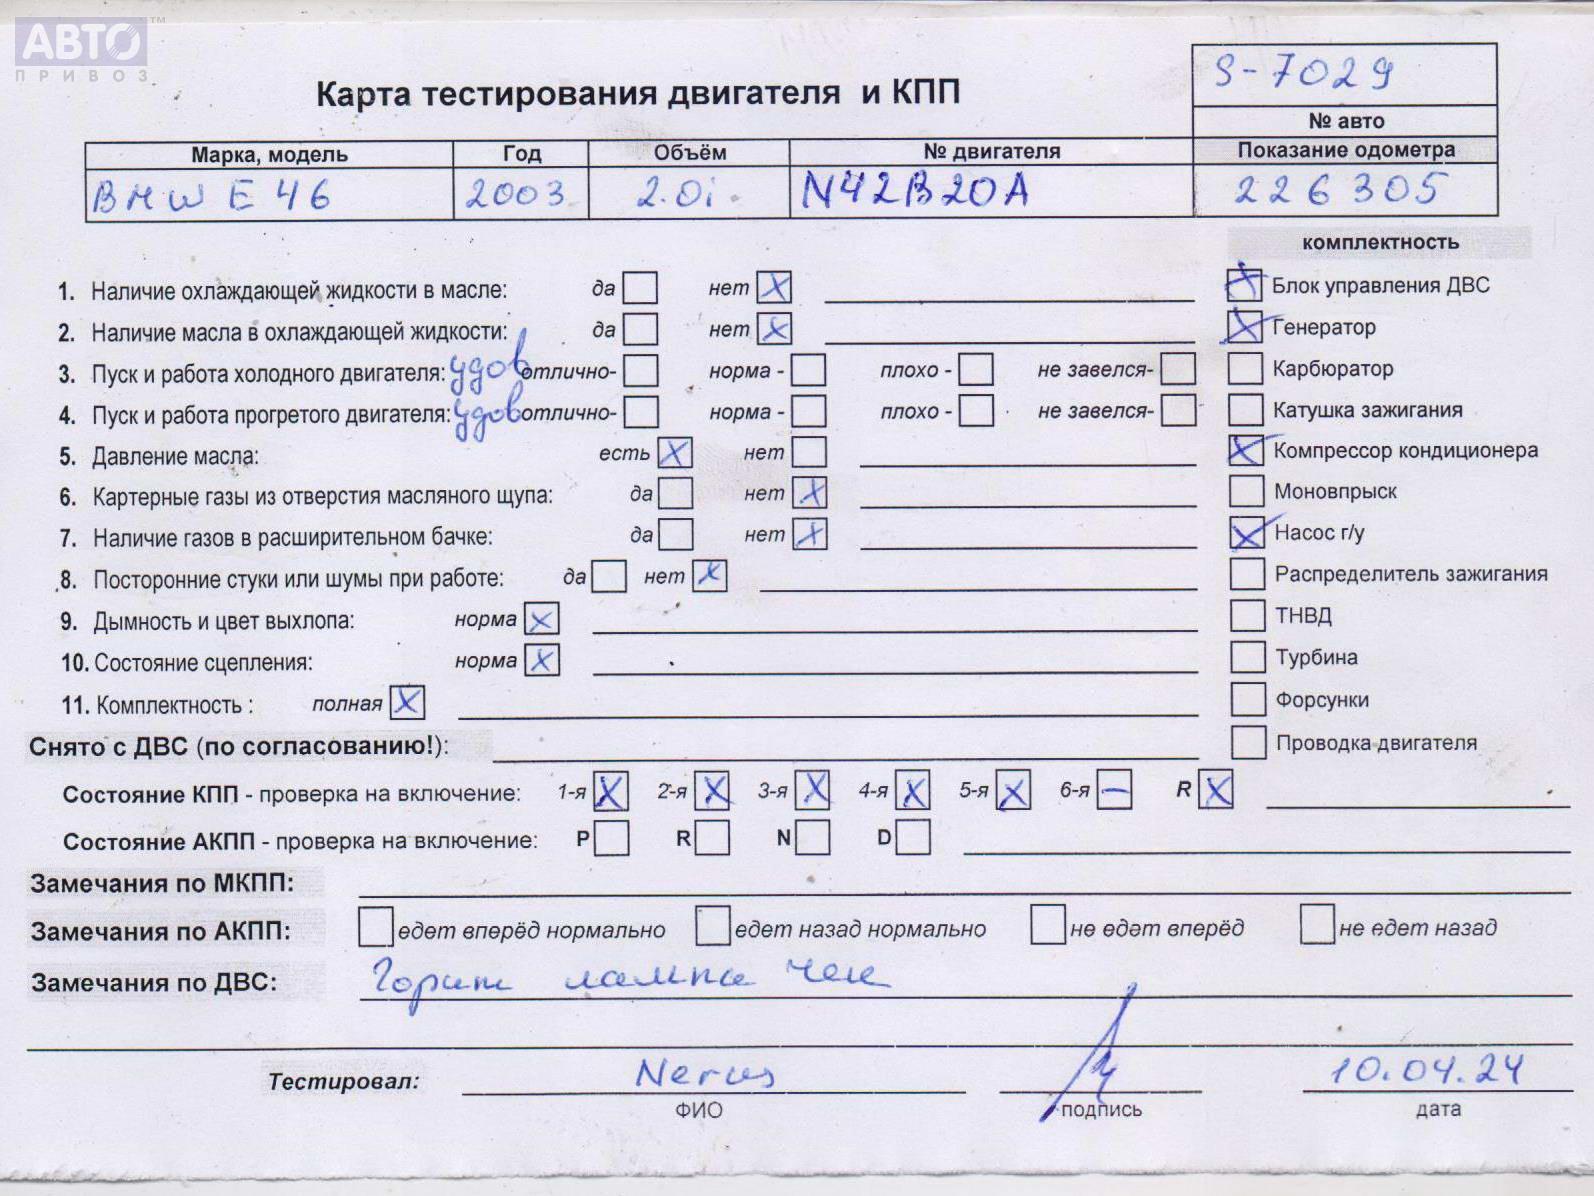 АВТО™
ПРИВОЗ
S-7029
Карта тестирования двигателя и КПП
№ авто
Марка, модель Год Объём № двигателя Показание одометра
BMW E 46 2003 2.0i N42B20A 226 305
комплектность
1. Наличие охлаждающей жидкости в масле: да нет X Блок управления ДВС
2. Наличие масла в охлаждающей жидкости: да нет X Генератор
3. Пуск и работа холодного двигателя: удов отлично- норма - плохо - не завелся- Карбюратор
4. Пуск и работа прогретого двигателя: удов отлично- норма - плохо - не завелся- Катушка зажигания
5. Давление масла: есть X нет Компрессор кондиционера
6. Картерные газы из отверстия масляного щупа: да нет X Моновпрыск
7. Наличие газов в расширительном бачке: да нет X Насос г/у
8. Посторонние стуки или шумы при работе: да нет X Распределитель зажигания
9. Дымность и цвет выхлопа: норма X ТНВД
10. Состояние сцепления: норма X Турбина
11. Комплектность : полная X Форсунки
Снято с ДВС (по согласованию!): Проводка двигателя
Состояние КПП - проверка на включение: 1-я X 2-я X 3-я X 4-я X 5-я X 6-я – R X
Состояние АКПП - проверка на включение: P R N D
Замечания по МКПП:
Замечания по АКПП: едет вперёд нормально едет назад нормально не едет вперёд не едет назад
Замечания по ДВС: Горит лампа чек
Тестировал: 10.04.24
ФИО подпись дата